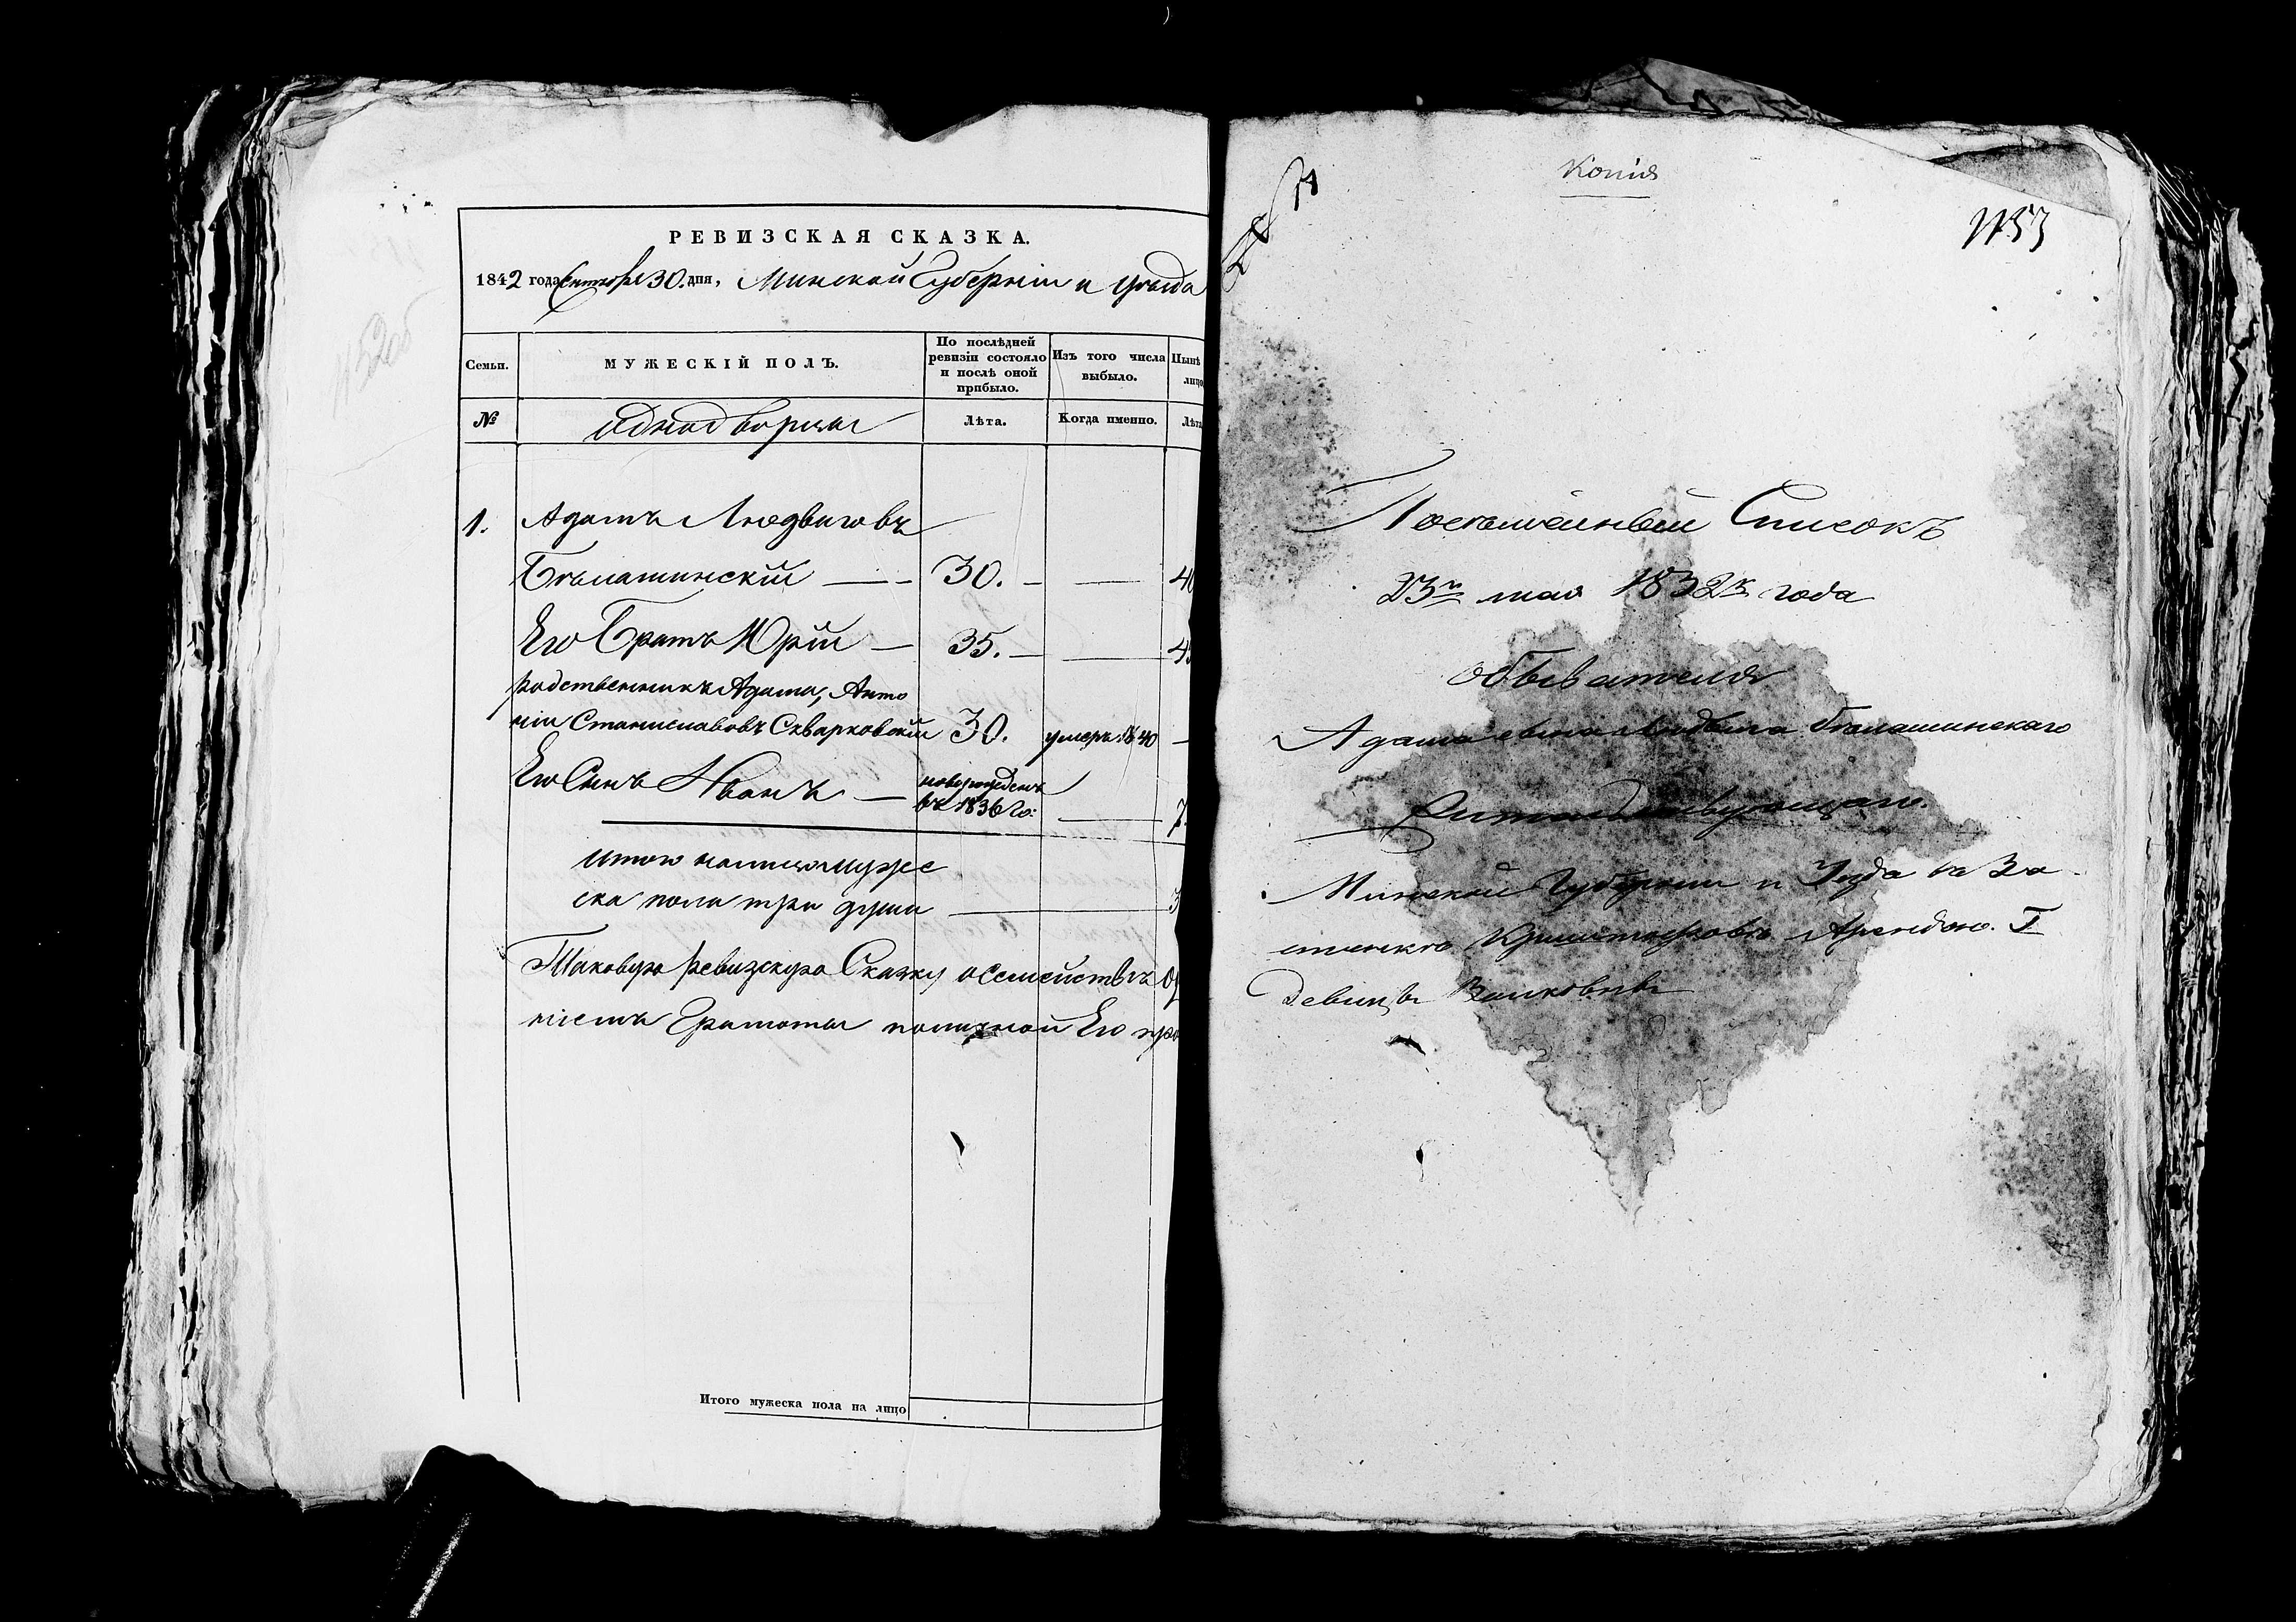 РЕВИЗСКАЯ СКАЗКА.
1842 года Октября 30. дня, Минской Губерніи и уѣзда
Семьи.
МУЖЕСКІЙ ПОЛЪ.
По послѣдней
ревизіи состояло
и послѣ оной
прибыло.
Изъ того числа
выбыло.
Нынѣ
лицо
№
Однодворцы
Лѣта.
Когда именно.
Лѣта
1. Адамъ Людвиговъ
Бѣлашинскій 30.
Его Братъ Юрій 35.
родственникъ Адама, Анто
ній Станиславовъ Скварковскій 30. умеръ 1840
Его Сынъ Иванъ новорожденъ
въ 1836 го: 7.
Итого налицо мужес
ка пола три души 3
Таковую ревизскую Сказку о семействѣ
ніемъ Грамоты по личной Его про
Итого мужеска пола на лицо
Копія
1153
Посемейный Списокъ
23го мая 1832го года
Обывателя
Адама сына Людвига Бѣлашинскаго
Минской Губерніи и Уѣзда въ За
стѣнкѣ Арендою. Г
Девицы